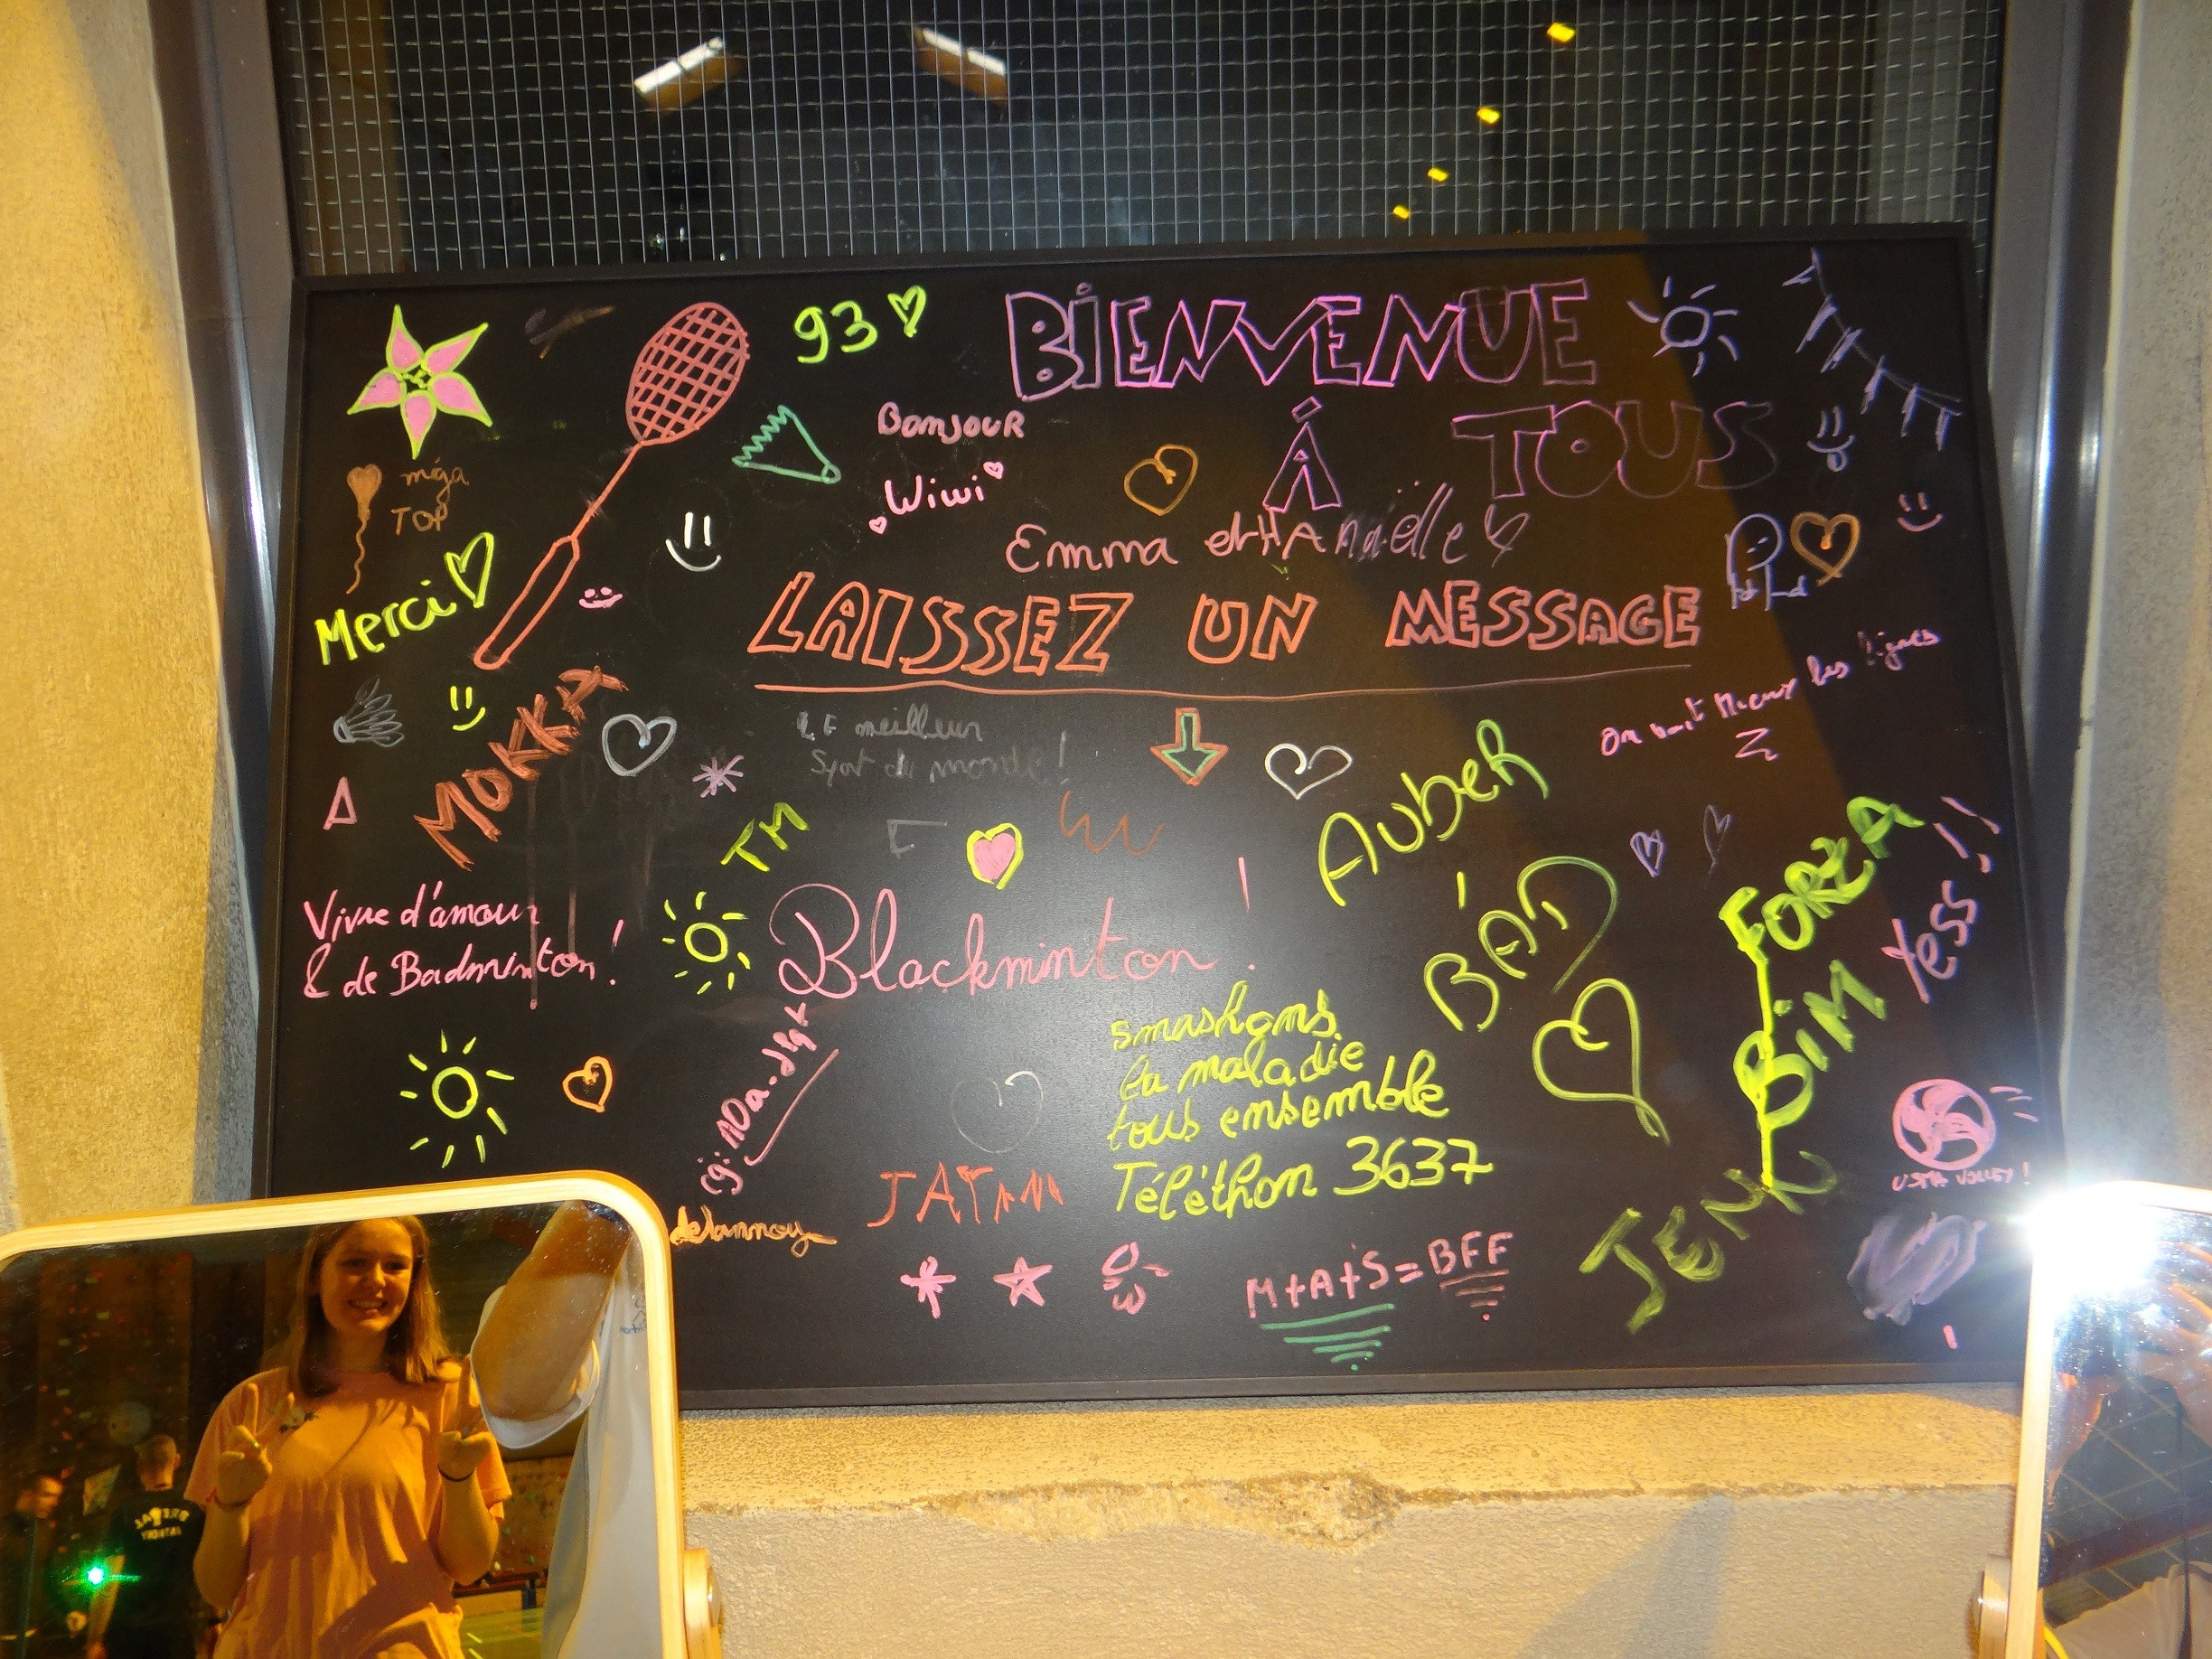 93
BIENVENUE
À TOUS
BonjouR
Wiwi
TOP
Emma et HAnaëlle
Merci
LAISSEZ UN MESSAGE
MOKKA
LE meilleur
Sport du monde !
On voit Mieux les lignes
TM
AUBER
BAD
Vivre d'amour
& de Badminton !
Blackminton !
FORZA
BIM
Yess !!
smashons
la maladie
tous ensemble
Téléthon 3637
delannoy
USMA VOLLEY !
M+A+S=BFF